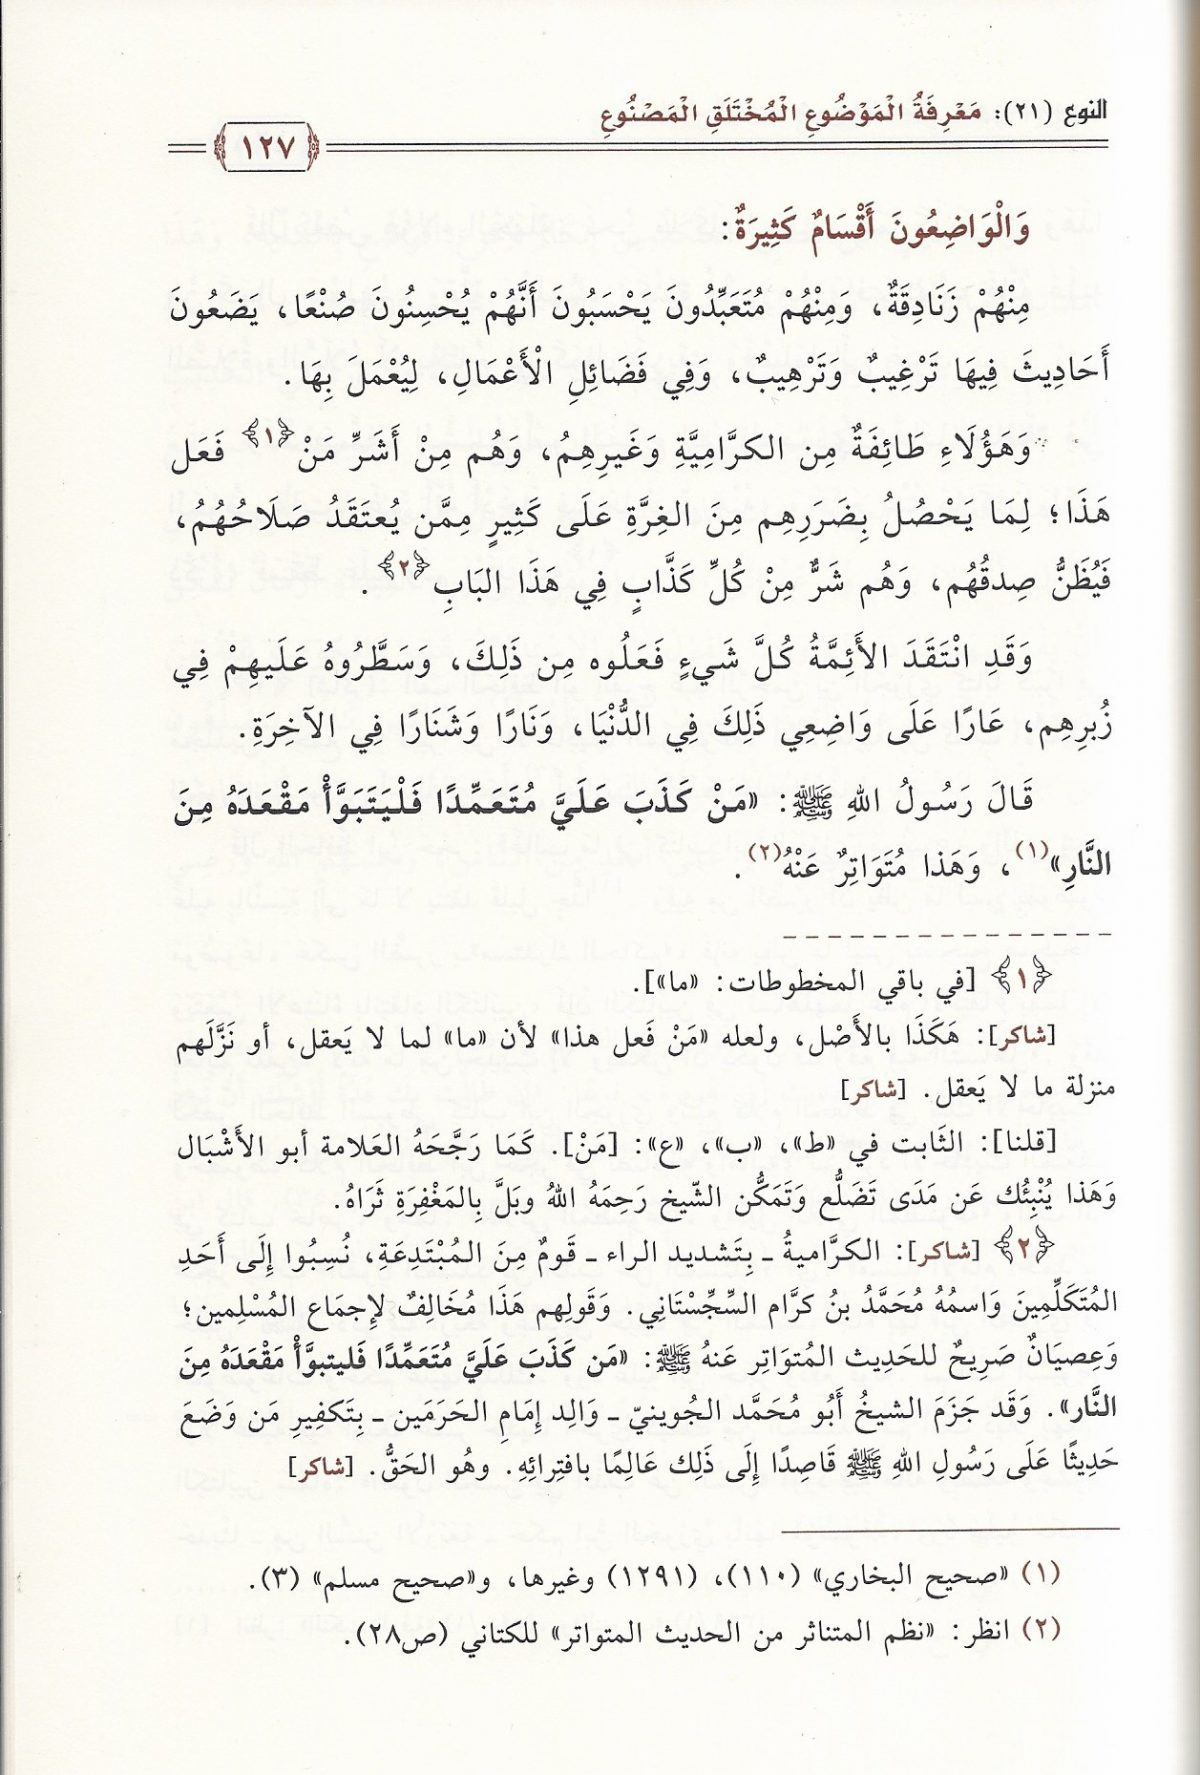 النوع (٢١): مَعْرِفَةُ الْمَوْضُوعِ الْمُخْتَلَقِ الْمَصْنُوعِ
١٢٧
وَالْوَاضِعُونَ أَقْسَامٌ كَثِيرَةٌ:
مِنْهُمْ زَنَادِقَةٌ، وَمِنْهُمْ مُتَعَبِّدُونَ يَحْسَبُونَ أَنَّهُمْ يُحْسِنُونَ صُنْعًا، يَضَعُونَ
أَحَادِيثَ فِيهَا تَرْغِيبٌ وَتَرْهِيبٌ، وَفِي فَضَائِلِ الْأَعْمَالِ، لِيُعْمَلَ بِهَا.
وَهَؤُلَاءِ طَائِفَةٌ مِن الكرَّامِيَّةِ وَغَيرِهِمُ، وَهُم مِنْ أَشَرِّ مَنْ ﴿١﴾ فَعَل
هَذَا؛ لِمَا يَحْصُلُ بِضَرَرِهِم مِنَ الغِرَّةِ عَلَى كَثِيرٍ مِمَّن يُعتَقَدُ صَلَاحُهُمُ،
فَيُظَنُّ صِدقُهُم، وَهُم شَرٌّ مِنْ كُلِّ كَذَّابٍ فِي هَذَا البَابِ ﴿٢﴾.
وَقَدِ انْتَقَدَ الأَئِمَّةُ كُلَّ شَيءٍ فَعَلُوه مِن ذَلِكَ، وَسَطَّرُوهُ عَلَيهِمْ فِي
زُبرِهِم، عَارًا عَلَى وَاضِعِي ذَلِكَ فِي الدُّنْيَا، وَنَارًا وَشَنَارًا فِي الآخِرَةِ.
قَالَ رَسُولُ اللهِ ﷺ: «مَنْ كَذَبَ عَلَيَّ مُتَعَمِّدًا فَلْيَتَبَوَّأْ مَقْعَدَهُ مِنَ
النَّارِ»(١)، وَهَذا مُتَوَاتِرٌ عَنْهُ(٢).
﴿١﴾ [في باقي المخطوطات: «ما»].
[شاكر]: هَكَذَا بالأَصْل، ولعله «مَنْ فَعل هذا» لأن «ما» لما لا يَعقل، أو نَزَّلَهم
منزلة ما لا يَعقل. [شاكر]
[قلنا]: الثَابت في «ط»، «ب»، «ع»: [مَنْ]. كَمَا رَجَّحَهُ العَلامة أبو الأَشْبَال
وَهَذا يُنْبِئُك عَن مَدَى تَضَلُّع وَتَمَكُّن الشّيخ رَحِمَهُ اللهُ وبَلَّ بِالمَغْفِرَةِ ثَرَاهُ.
﴿٢﴾ [شاكر]: الكرَّاميةُ ـ بِتَشديد الراء ـ قَومٌ مِنَ المُبْتَدِعَةِ، نُسِبُوا إِلَى أَحَدِ
المُتَكَلِّمِينَ وَاسمُهُ مُحَمَّدُ بنُ كرَّام السِّجِسْتَانِي. وَقَولِهم هَذَا مُخَالِفٌ لإِجمَاع المُسْلِمين؛
وَعِصيَانٌ صَرِيحٌ للحَدِيث المُتوَاتِر عَنهُ ﷺ: «مَن كَذَبَ عَلَيَّ مُتَعَمِّدًا فَليتبوَّأْ مَقْعَدَهُ مِنَ
النَّار». وَقَد جَزَمَ الشيخُ أَبُو مُحَمَّد الجُوينيّ ـ وَالِد إِمَامِ الحَرَمَين ـ بِتَكفِيرِ مَن وَضَعَ
حَدِيثًا عَلَى رَسُولِ اللهِ ﷺ قَاصِدًا إِلَى ذَلِك عَالِمًا بافتِرائِهِ. وهُو الحَقُّ. [شاكر]
(١) «صحيح البخاري» (١١٠)، (١٢٩١) وغيرها، و«صحيح مسلم» (٣).
(٢) انظر: «نظم المتناثر من الحديث المتواتر» للكتاني (ص٢٨).